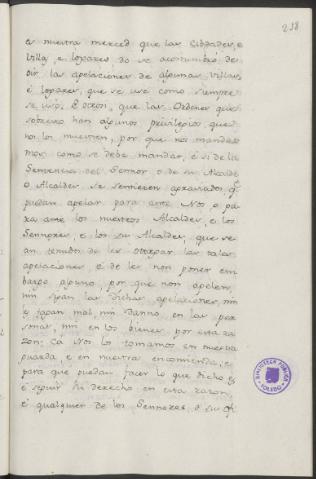 238
es nuestra merced que las Cibdades, e
Villas, e logares do se acostumbró de
oir las apelaciones de algunas Villas
é logares, que se use como siempre
se usó: E otrosi, que las Ordenes que
sobresto han algunos privilegios que
nos los muestren, por que nos mandare
mos como se debe mandar, é si de la
Sentencia del Sennor o de su Alcalde
o Alcaldes se sentieren agraviados, q
puedan apelar para ante Nos o pa
ra ante los nuestros Alcaldes, e los
Sennores, e los su Alcaldes, que se
an tenudos de les otorgar las tales
apelaciones é de les non poner em
bargo alguno, por que non apelen,
nin sigan las dichas apelaciones, nin
les fagan mal, nin danno, en las per
sonas, nin en los bienes por esta ra
zon; Ca Nos lo tomamos en nuestra
guarda, e en nuestra encomienda, e
para que puedan facer lo que dicho es
é seguir su derecho en esta razon,
é qualquier de los Sennores, o su of
BIBLIOTECA PÚBLICA
TOLEDO